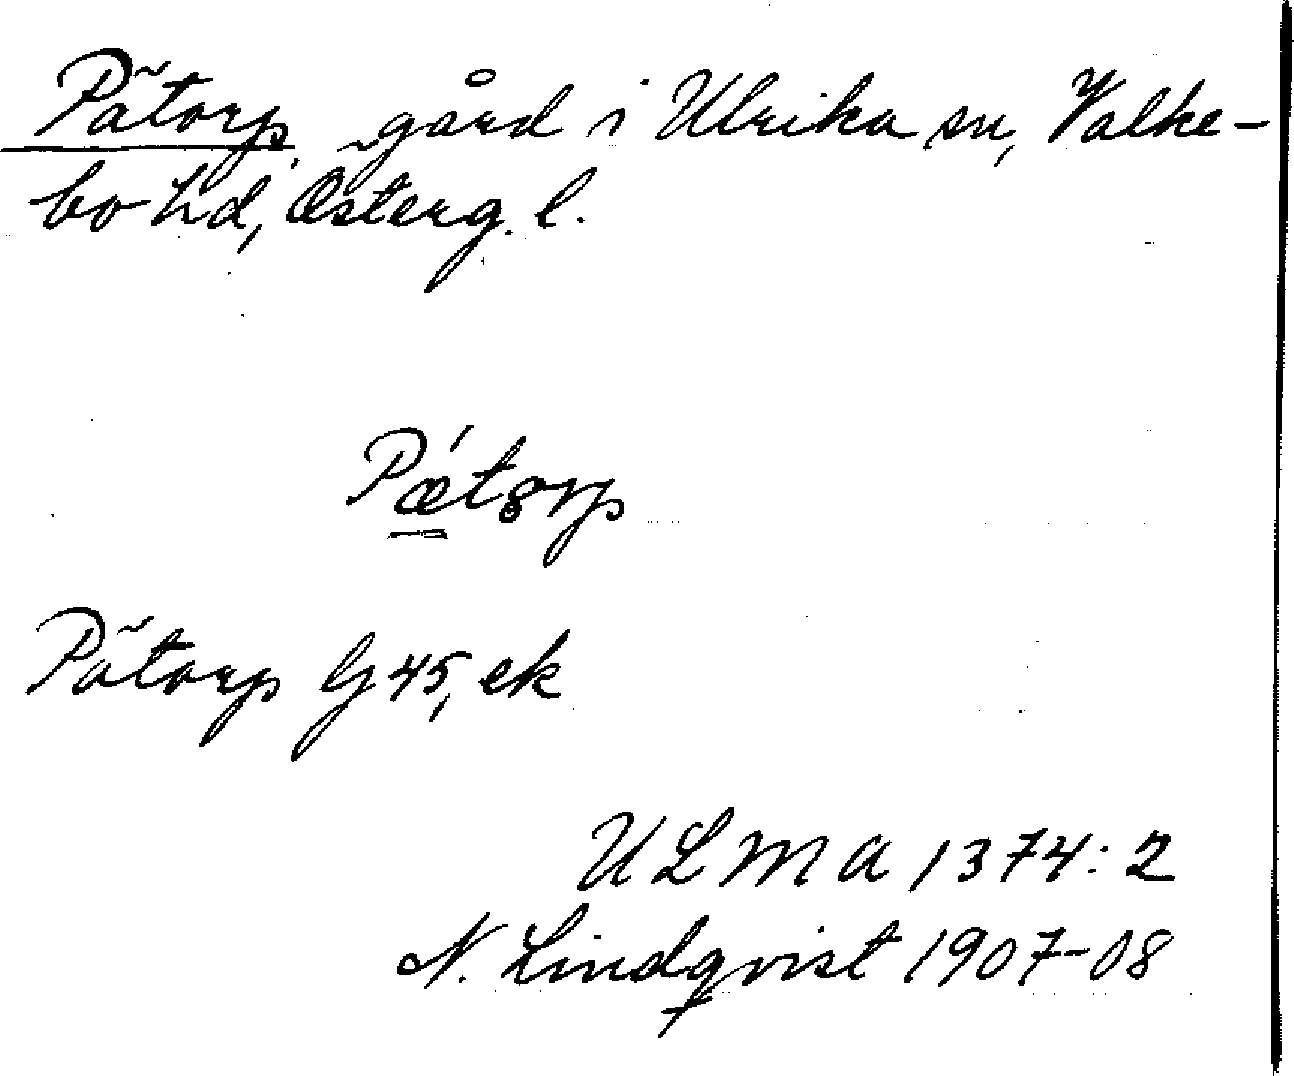 Pätorp, gård i Ulrika sn, Valke-
bo hd, Österg. l.
Pǽtorp
Pätorp G 45, ek
ULMA 1374:2
N. Lindqvist 1907-08